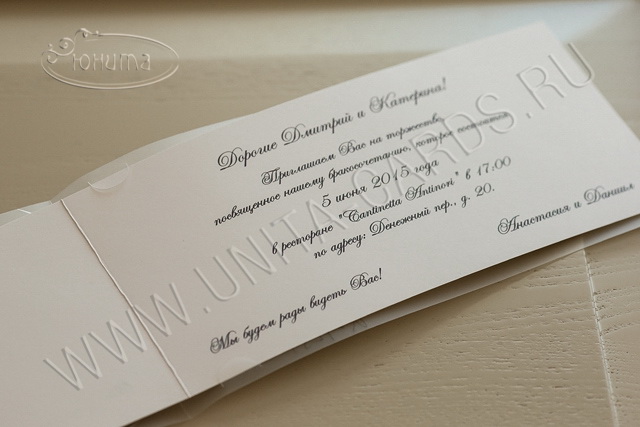 Юнита
Дорогие Дмитрий и Катерина!
Приглашаем Вас на торжество,
посвященное нашему бракосочетанию, которое состоится
5 июня 2015 года
в ресторане "Cantinetta Antinori" в 17:00
по адресу: Денежный пер., д. 20.
Анастасия и Даниил
Мы будем рады видеть Вас!
WWW.UNITA-CARDS.RU